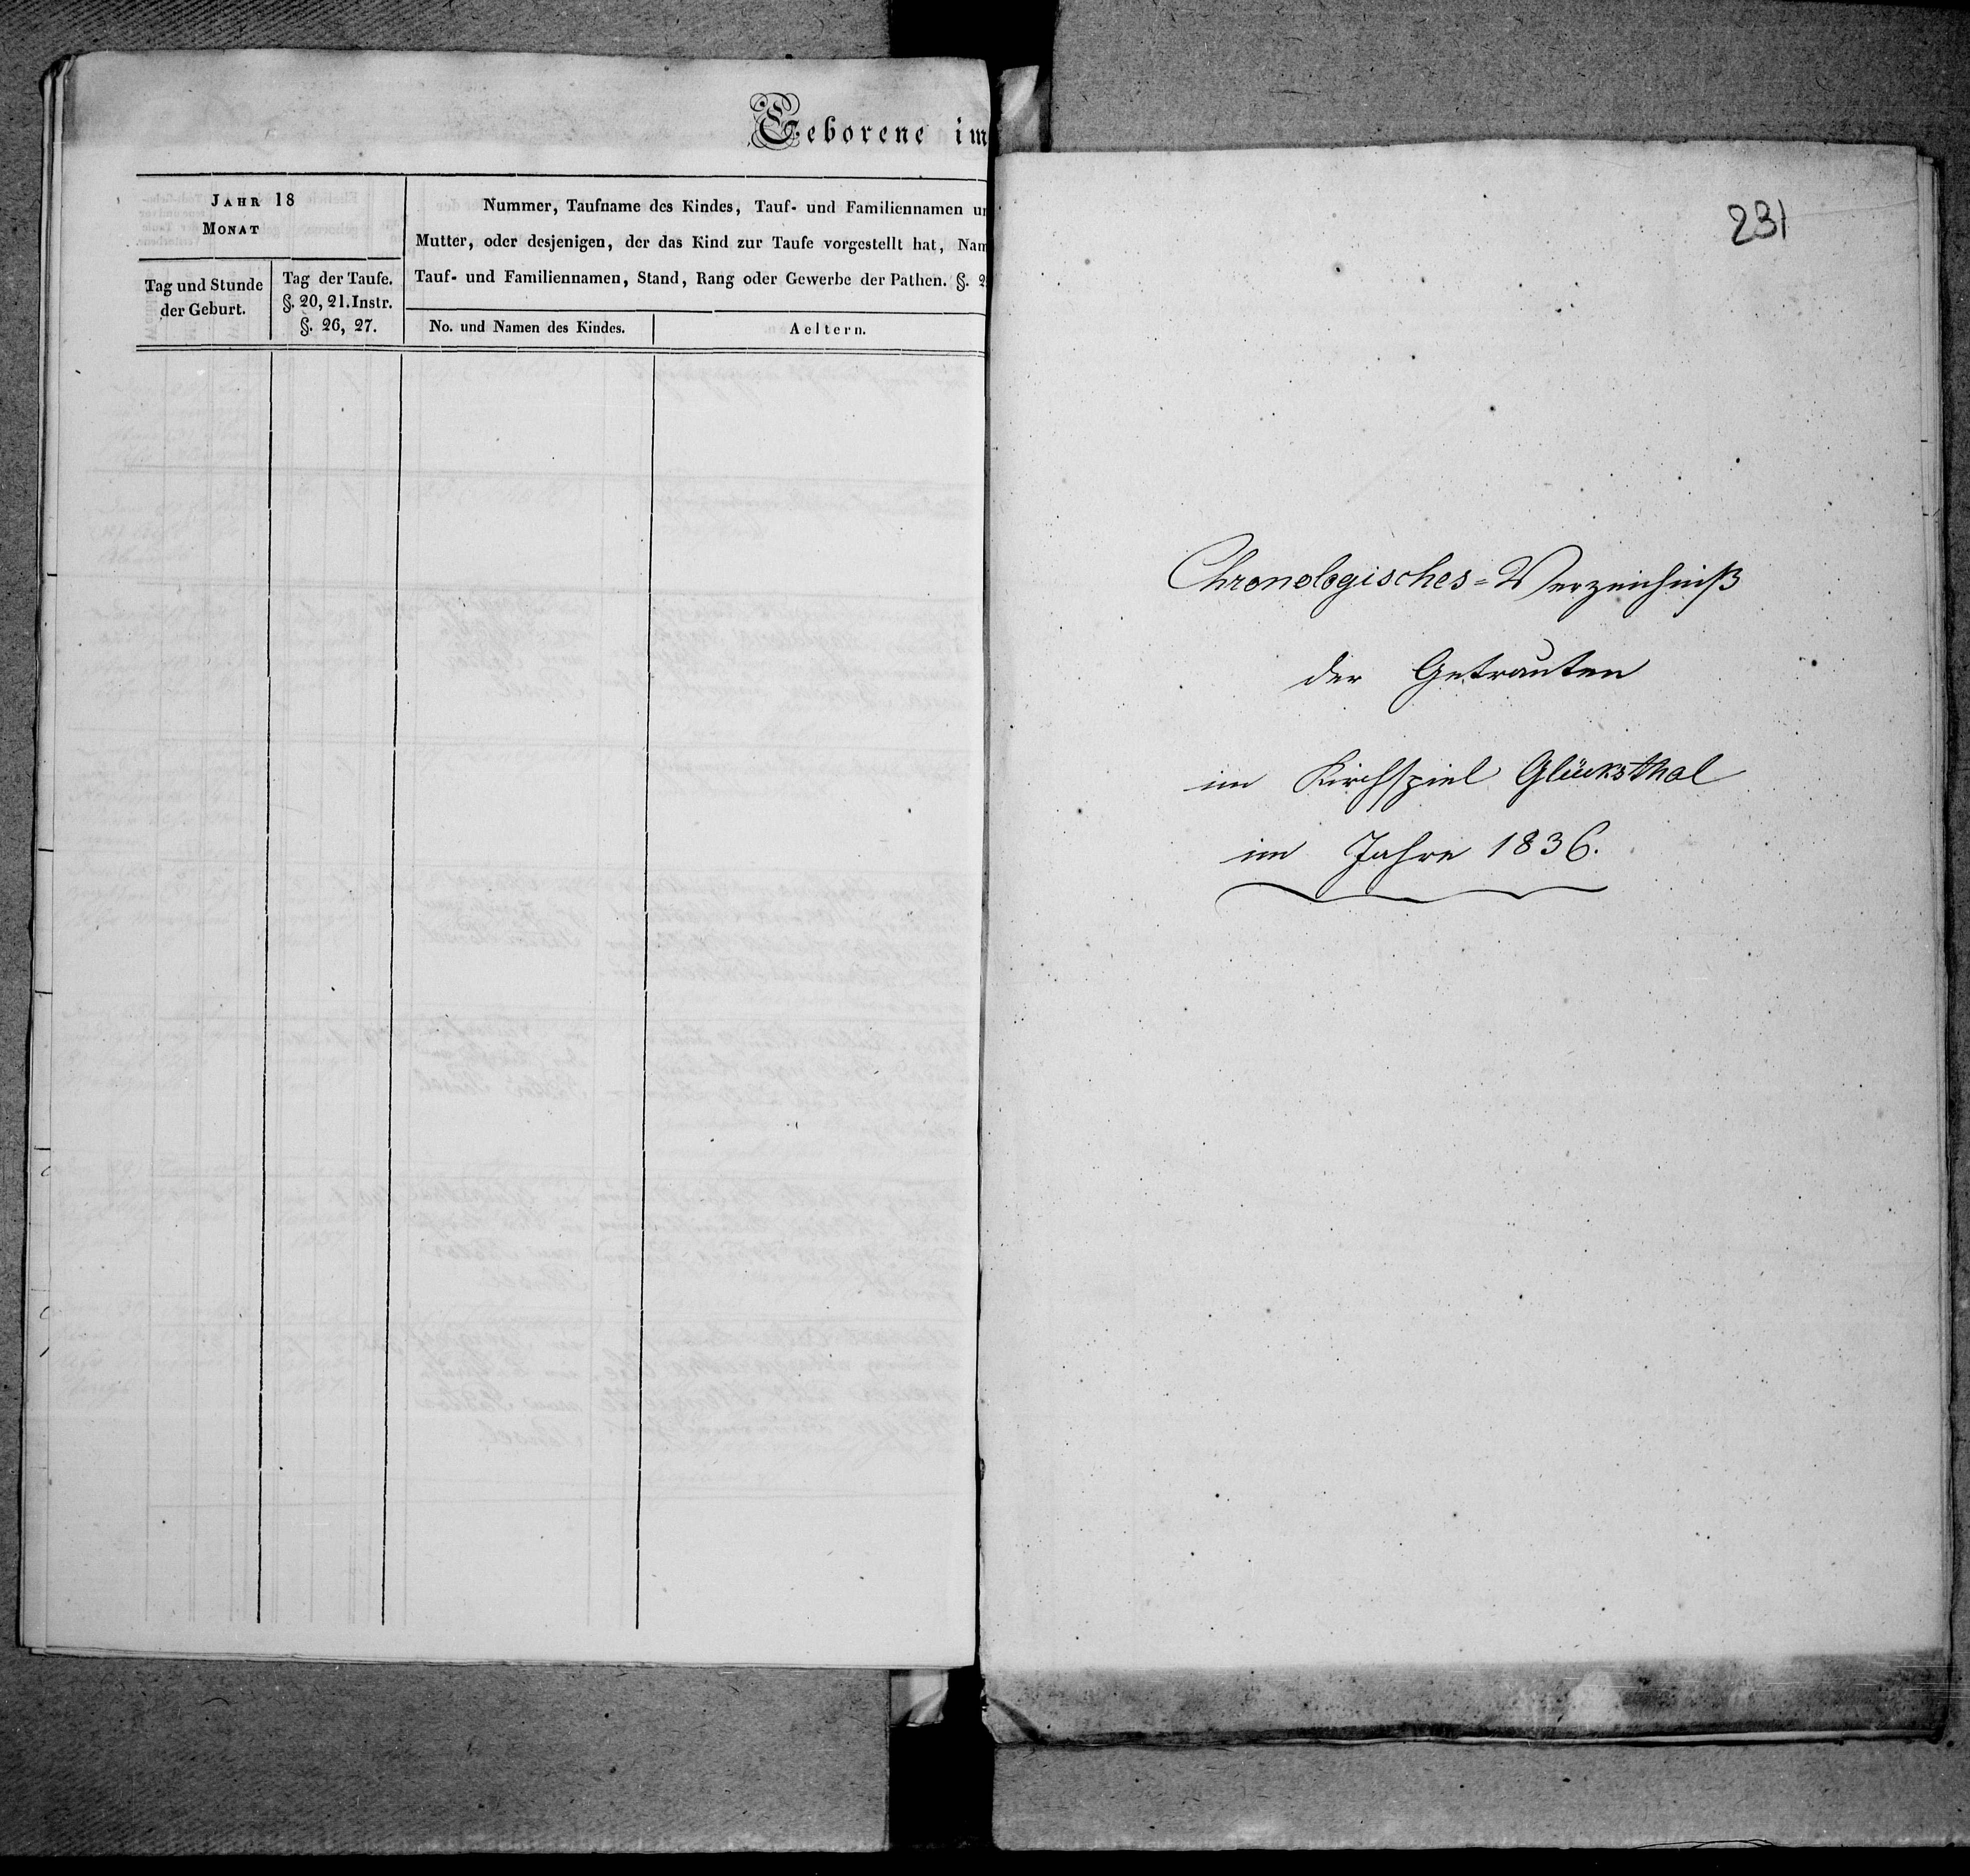 Geborene im
JAHR 18
MONAT
Nummer, Taufname des Kindes, Tauf- und Familiennamen
Mutter, oder desjenigen, der das Kind zur Taufe vorgestellt hat,
Tauf- und Familiennamen, Stand, Rang oder Gewerbe der Pathen. §.
Tag und Stunde
der Geburt.
Tag der Taufe.
§. 20, 21. Instr.
§. 26, 27.
No. und Namen des Kindes.
Aeltern.
231
Chronologisches=Verzeichniß
der Getrauten
im Kirchspiel Glücksthal
im Jahre 1836.